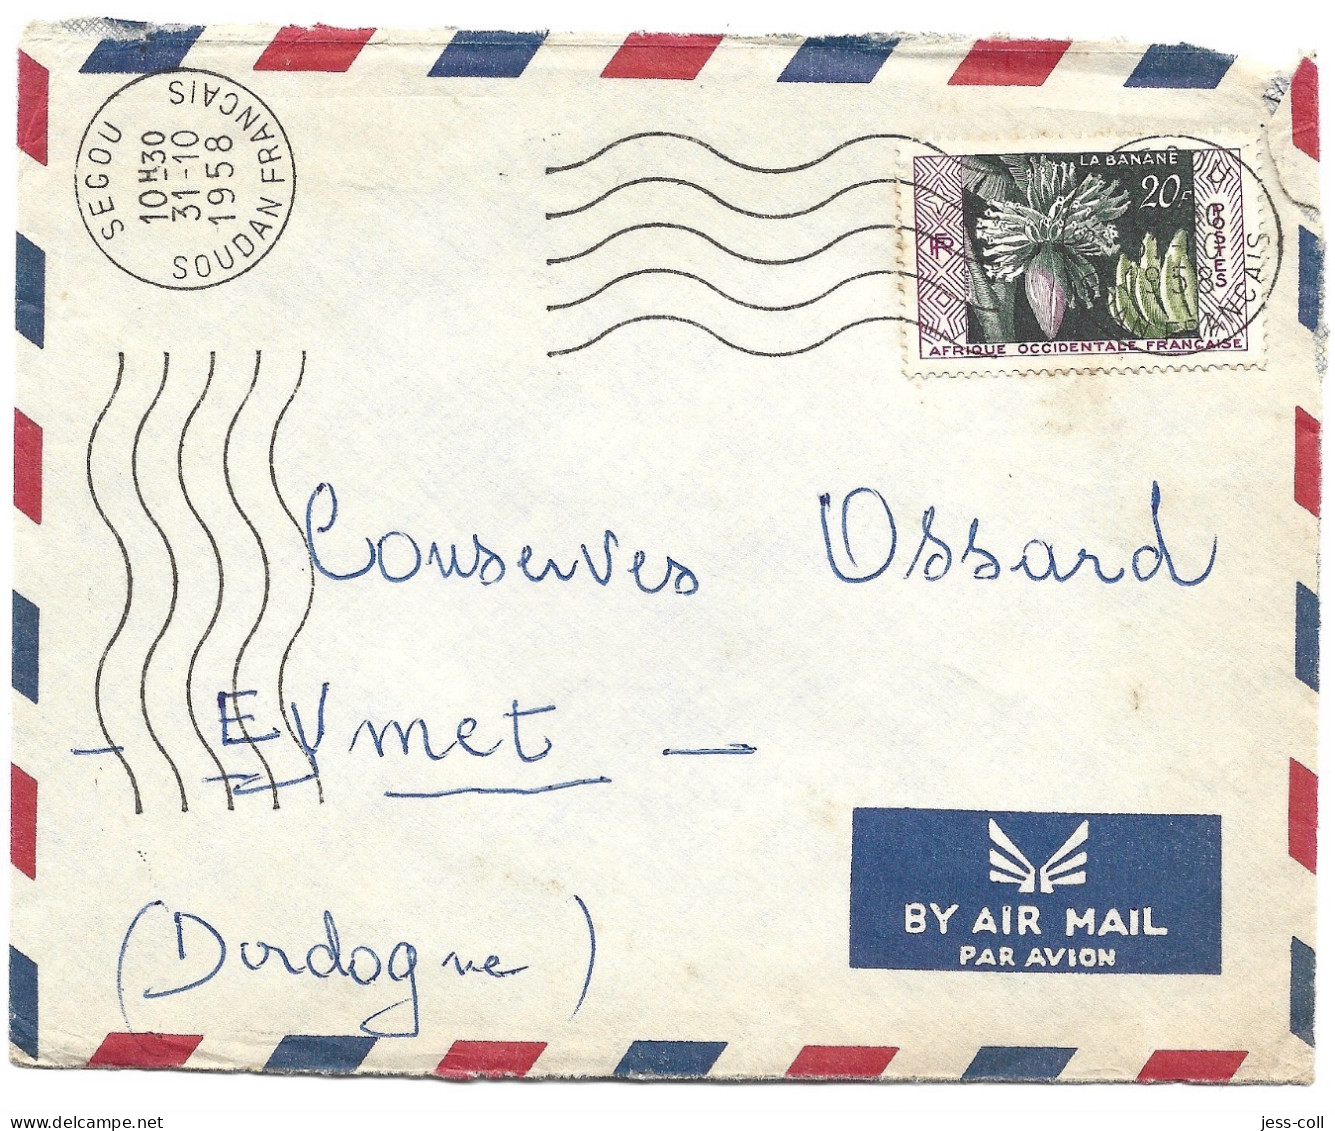 SEGOU
10H30
31-10
1958
SOUDAN FRANCAIS
LA BANANE
20F
RF
POSTES
1958
AFRIQUE OCCIDENTALE FRANÇAISE
Conserves Ossard
- EVmet -
(Dordogne)
BY AIR MAIL
PAR AVION
delcampe.net
jess-coll